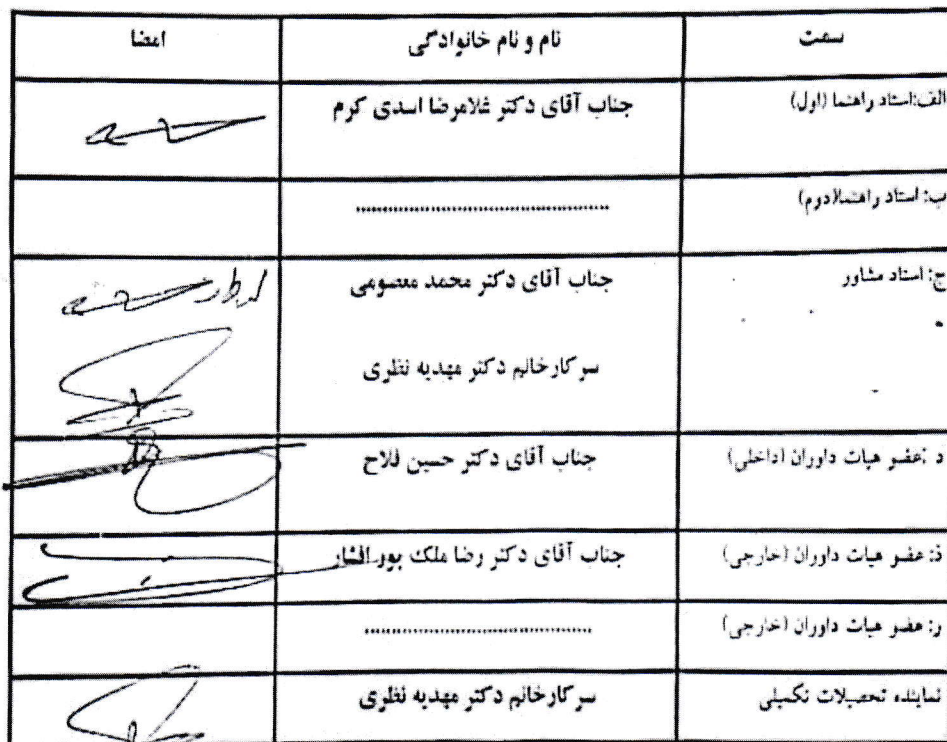 سمت نام و نام خانوادگی امضا
الف:استاد راهنما (اول) جناب آقای دکتر غلامرضا اسدی کرم
ب: استاد راهنما(دوم) ............................................
ج: استاد مشاور جناب آقای دکتر محمد معصومی
سرکارخانم دکتر مهدیه نظری
د :عضو هیات داوران (داخلی) جناب آقای دکتر حسین فلاح
ذ: عضو هیات داوران (خارجی) جناب آقای دکتر رضا ملک پور افشار
ر: عضو هیات داوران (خارجی) ........................................
نماینده تحصیلات تکمیلی سرکارخانم دکتر مهدیه نظری